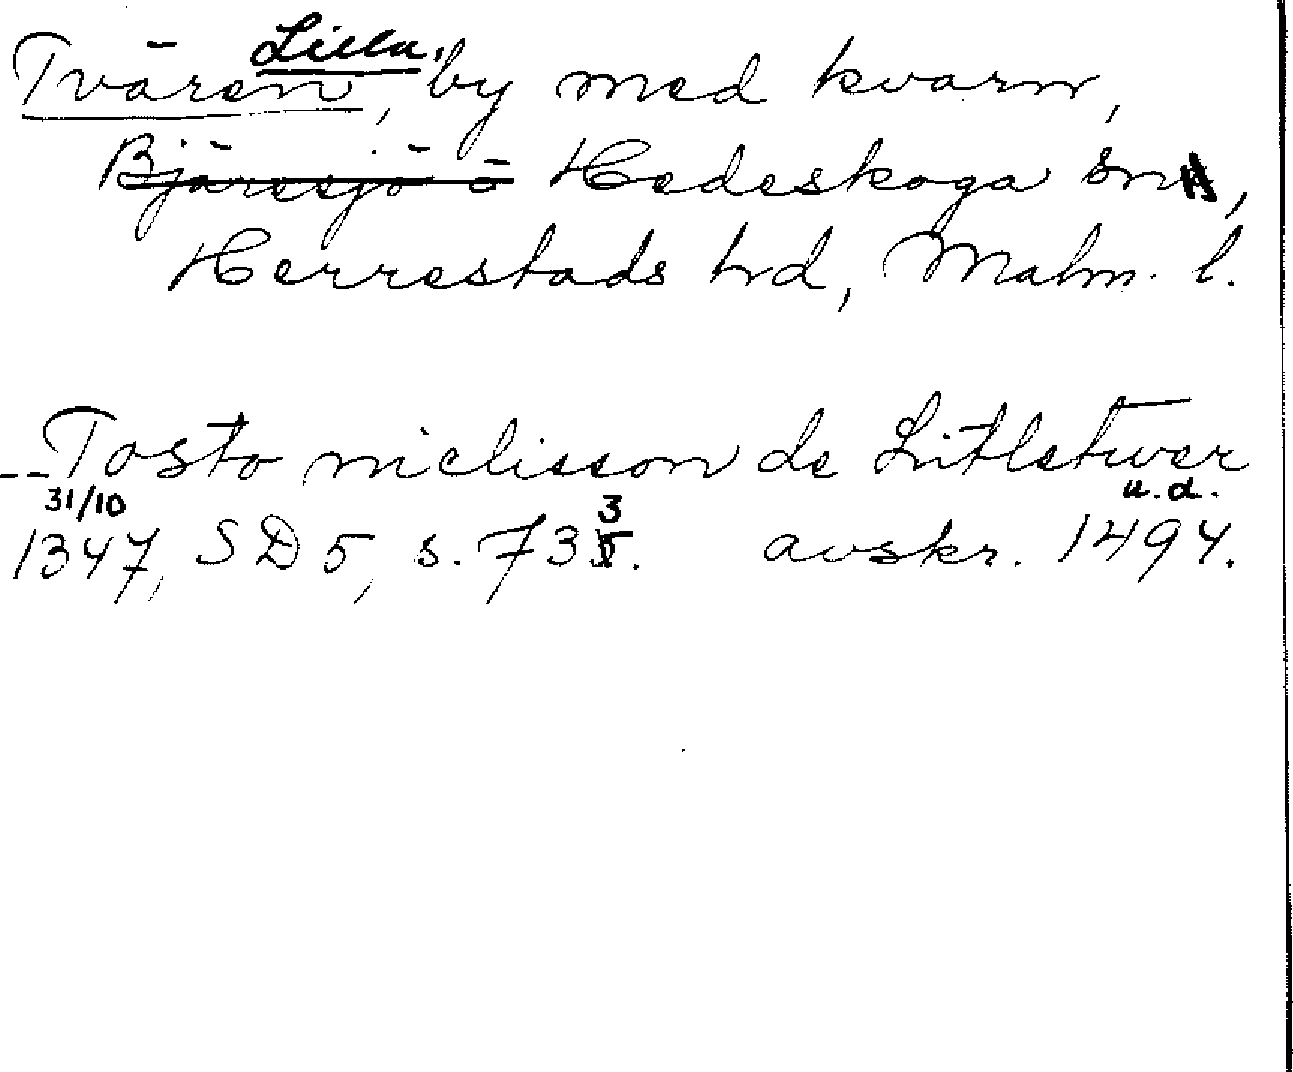 Tvären, Lilla, by med kvarn,
Bjäresjö o Hedeskoga sn,
Herrestads hd, Malm. l.
--Tosto nielisson de Litletwer
31/10 1347, SD 5, s. 733. avskr. 1494. u.d.